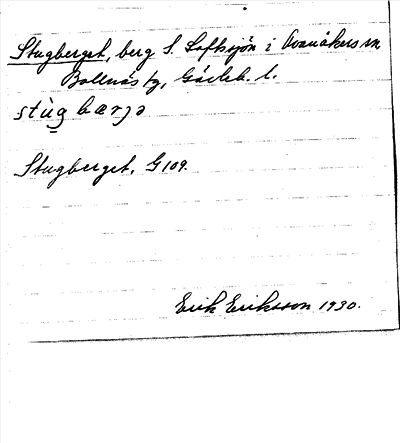 Stugberget, berg S. Lofssjön i Ovanåkers sn
Bollnäs tg, Gävleb. l.
stùg bærjə
Stugberget, G 109.
Erik Eriksson 1930.